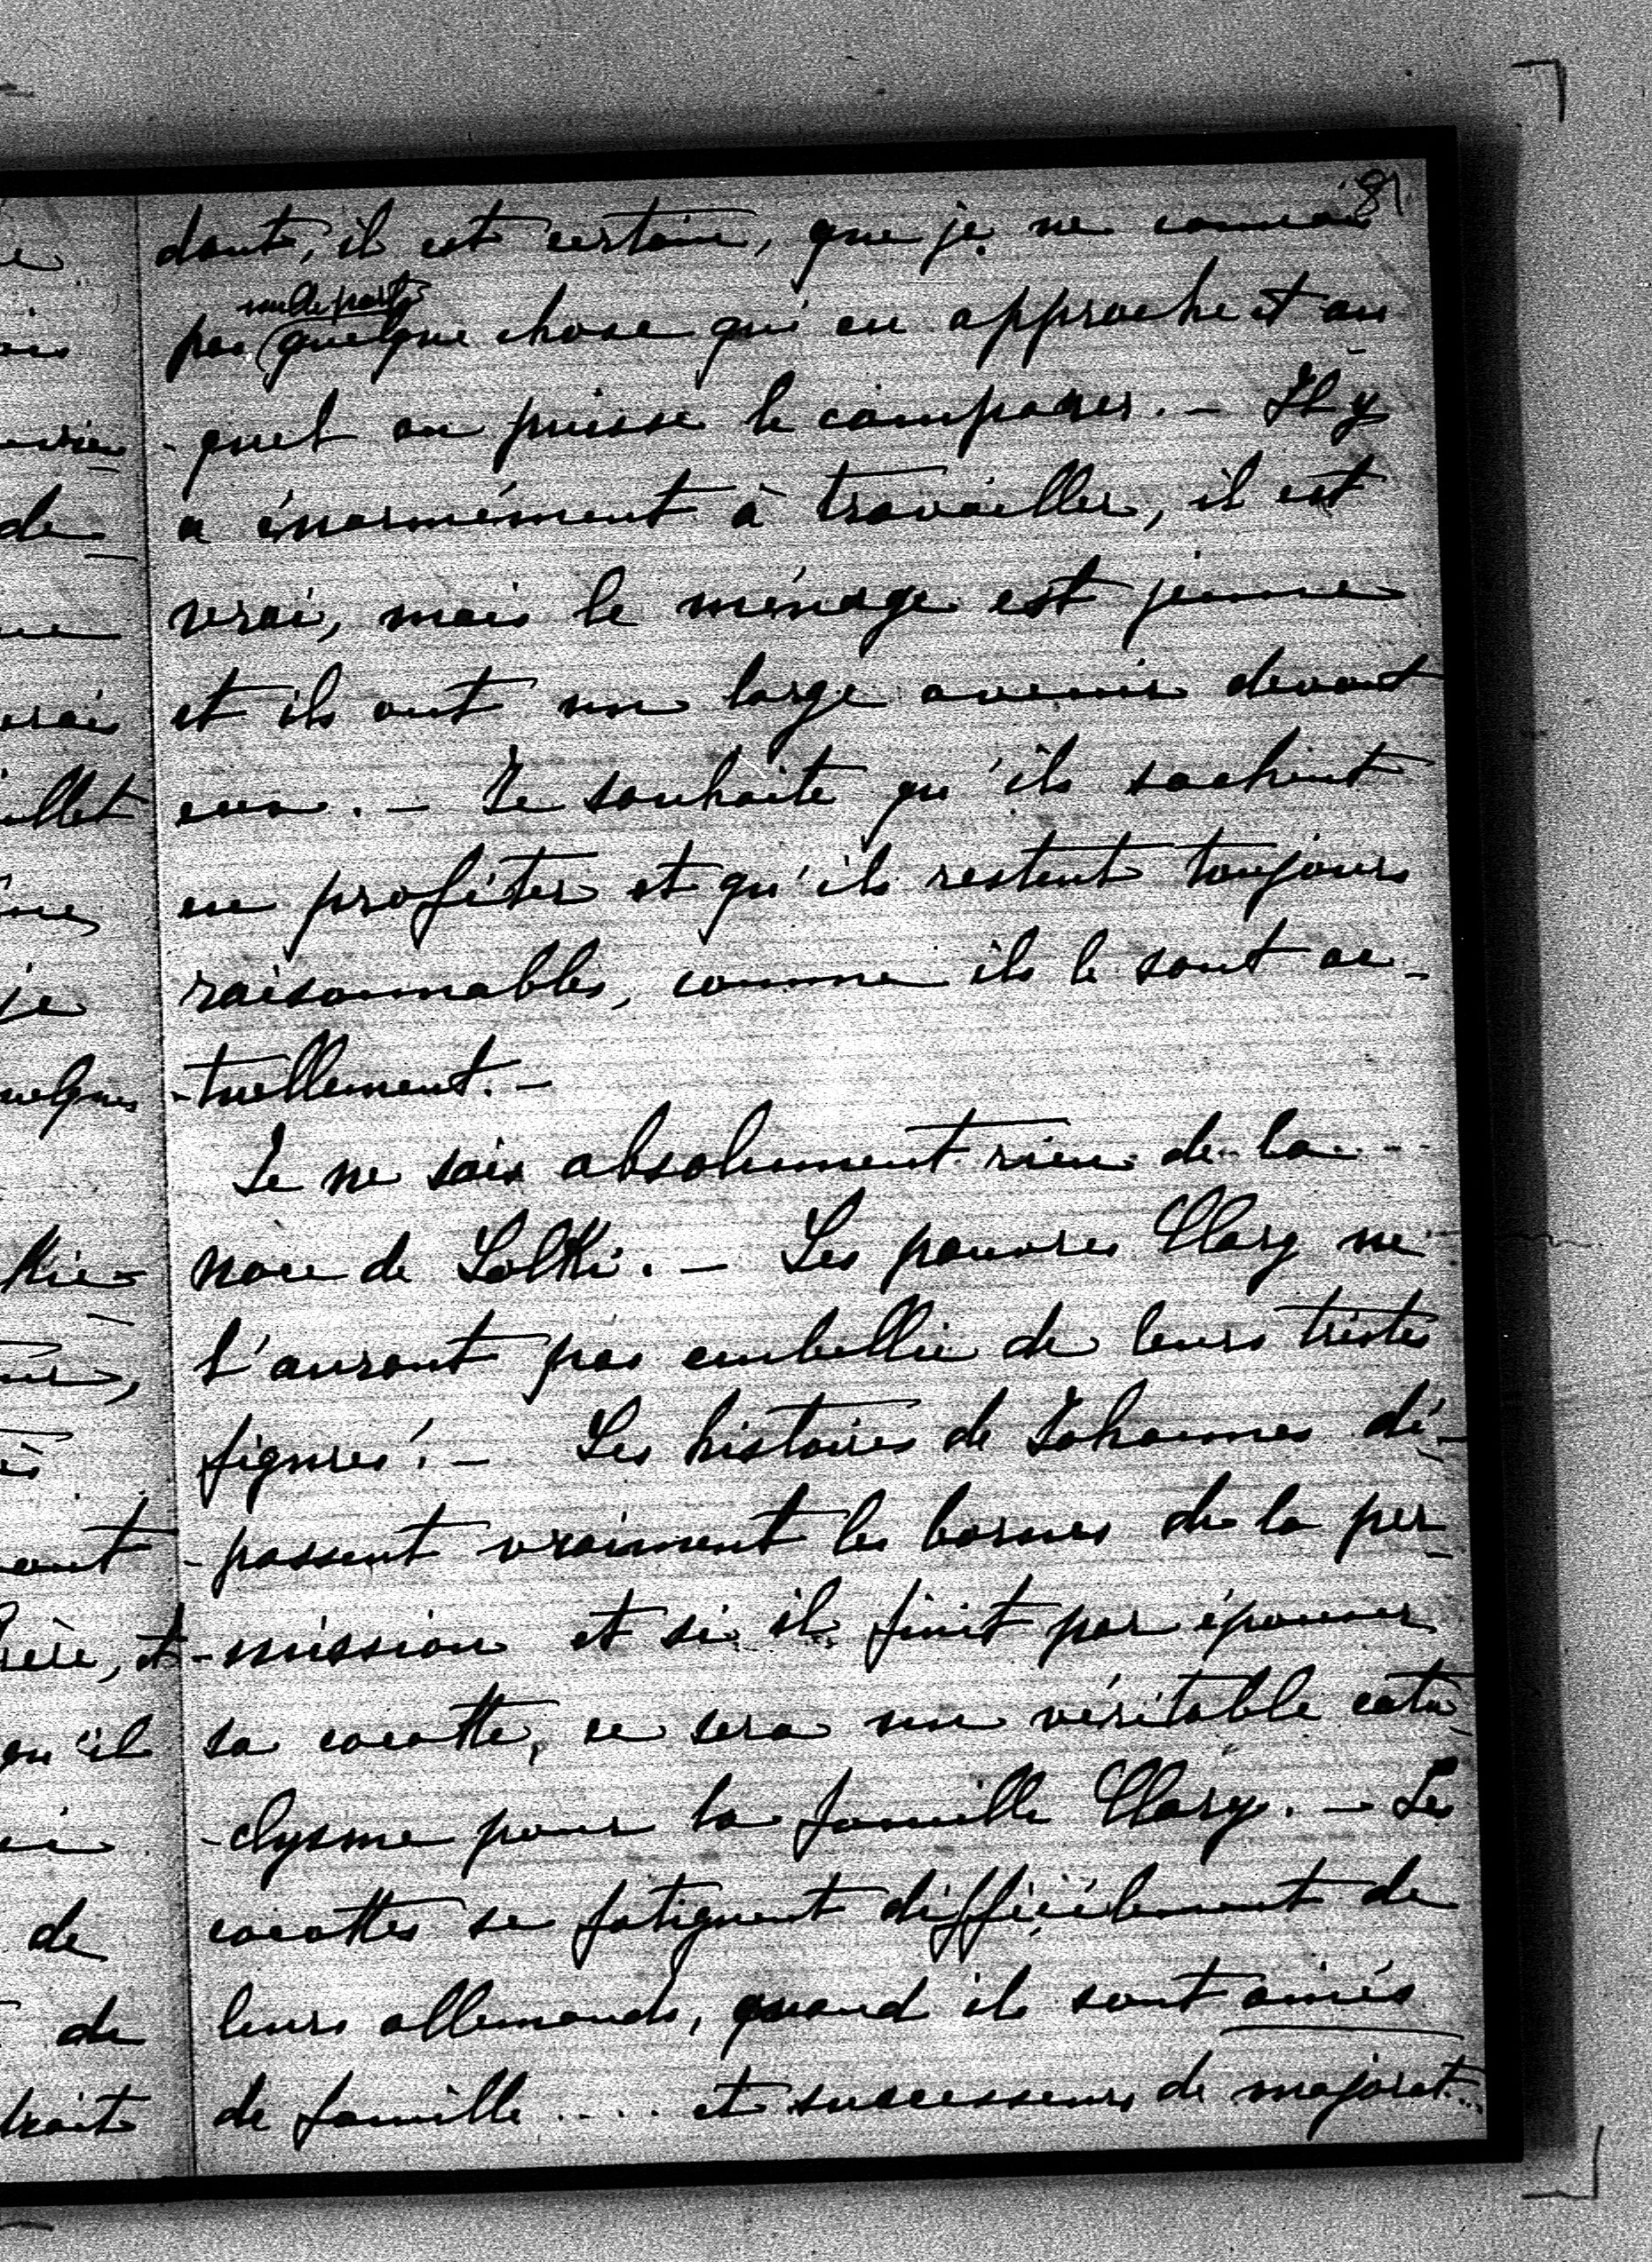 81
dant, il est certain, que je ne connais
nulle part
pas quelque chose qui en approche et au
-quel on puisse le comparer. - Il y
a énormément à travailler, il est
vrai, mais le ménage est jeune
et ils ont un large avenir devant
eux. - Je souhaite qu'ils sachent
en profiter et qu'ils restent toujours
raisonnables, comme ils le sont ac-
-tuellement. -
Je ne sais absolument rien de la
noce de Lolki. - Les pauvres Clary ne
l'auront pas embellie de leurs tristes
figures! - Les histoires de Johannes dé-
-passent vraiment les bornes de la per-
-mission et si il finit par épouser
sa cocotte, ce sera un véritable cata-
-clysme pour la famille Clary. - Les
cocottes se fatiguent difficilement de
leurs allemands, quand ils sont ainés
de famille .... et successeurs de majorat...